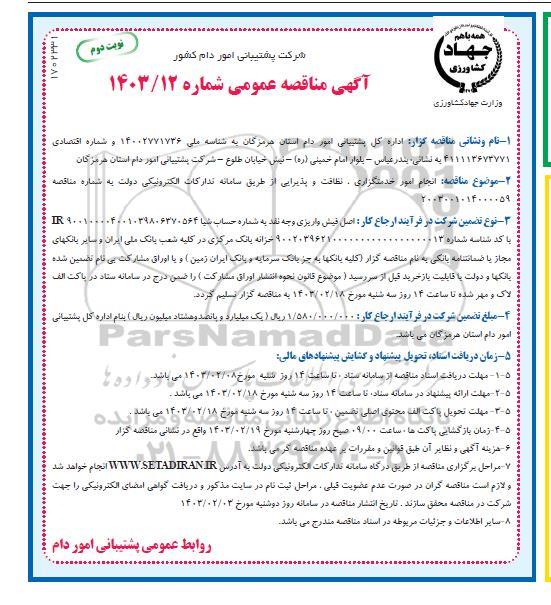 ۱۷۰۲۳۳۱
نوبت دوم
همه با هم
جهاد
کشاورزی
وزارت جهادکشاورزی
شرکت پشتیبانی امور دام کشور
آگهی مناقصه عمومی شماره ۱۴۰۳/۱۲
۱-نام ونشانی مناقصه گزار: اداره کل پشتیبانی امور دام استان هرمزگان به شناسه ملی ۱۴۰۰۲۷۷۱۷۳۶ و شماره اقتصادی
۴۱۱۱۱۳۶۷۴۷۷۱ به نشانی، بندرعباس – بلوار امام خمینی (ره) – نبش خیابان طلوع – شرکت پشتیبانی امور دام استان هرمزگان
۲-موضوع مناقصه: انجام امور خدمتگزاری ، نظافت و پذیرایی از طریق سامانه تدارکات الکترونیکی دولت به شماره مناقصه
۲۰۰۳۰۰۱۰۱۴۰۰۰۰۵۹
۳-نوع تضمین شرکت در فرآیند ارجاع کار: اصل فیش واریزی وجه نقد به شماره حساب شبا IR ۹۰۰۱۰۰۰۰۴۰۰۱۰۳۹۸۰۶۳۷۰۵۶۴
با کد شناسه شماره خزانه بانک مرکزی در کلیه شعب بانک ملی ایران و سایر بانکهای
مجاز یا ضمانتنامه بانکی به نام مناقصه گزار (کلیه بانکها به جز بانک سرمایه و بانک ایران زمین ) و یا اوراق مشارکت بی نام تضمین شده
بانکها و دولت با قابلیت بازخرید قبل از سررسید ( موضوع قانون نحوه انتشار اوراق مشارکت ) را ضمن درج در سامانه ستاد در پاکت الف
لاک و مهر شده تا ساعت ۱۴ روز سه شنبه مورخ ۱۴۰۳/۰۲/۱۸ به مناقصه گزار تسلیم گردد.
۴-مبلغ تضمین شرکت در فرآیند ارجاع کار: ۱/۵۸۰/۰۰۰/۰۰۰ ریال ( یک میلیارد و پانصد وهشتاد میلیون ریال ) بنام اداره کل پشتیبانی
امور دام استان هرمزگان می باشد.
۵-زمان دریافت اسناد، تحویل پیشنهاد و گشایش پیشنهادهای مالی:
۵-۱- مهلت دریافت اسناد مناقصه از سامانه ستاد ، تا ساعت ۱۴ روز شنبه مورخ ۱۴۰۳/۰۲/۰۸ می باشد.
۵-۲-مهلت ارائه پیشنهاد در سامانه ستاد، تا ساعت ۱۴ روز سه شنبه مورخ ۱۴۰۳/۰۲/۱۸ می باشد.
۵-۳- مهلت تحویل پاکت الف محتوی اصلی تضمین ، تا ساعت ۱۴ روز سه شنبه مورخ ۱۴۰۳/۰۲/۱۸ می باشد .
۵-۴- زمان بازگشایی پاکت ها ، ساعت ۰۹/۰۰ صبح روز چهارشنبه مورخ ۱۴۰۳/۰۲/۱۹ واقع در نشانی مناقصه گزار
۶-هزینه آگهی و نظایر آن طبق قوانین و مقررات بر عهده مناقصه گر می باشد.
۷-مراحل برگزاری مناقصه از طریق درگاه سامانه تدارکات الکترونیکی دولت به آدرس WWW.SETADIRAN.IR انجام خواهد شد
و لازم است مناقصه گران در صورت عدم عضویت قبلی ، مراحل ثبت نام در سایت مذکور و دریافت گواهی امضای الکترونیکی را جهت
شرکت در مناقصه محقق سازند . تاریخ انتشار مناقصه در سامانه روز دوشنبه مورخ ۱۴۰۳/۰۲/۰۳
۸-سایر اطلاعات و جزئیات مربوطه در اسناد مناقصه مندرج می باشد.
روابط عمومی پشتیبانی امور دام
ParsNamadData